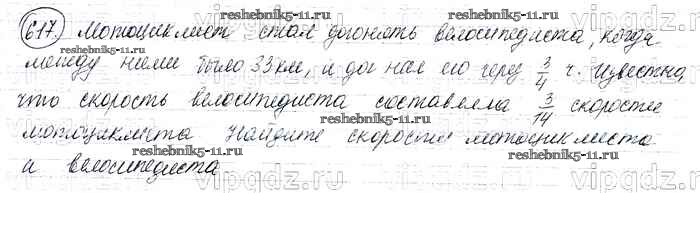 617. Мотоциклист стал догонять велосипедиста, когда
между ними было 33 км, и догнал его через 3/4 ч. Известно,
что скорость велосипедиста составляла 3/14 скорости
мотоциклиста Найдите скорости мотоциклиста
и велосипедиста
reshebnik5-11.ru
reshebnik5-11.ru
reshebnik5-11.ru
reshebnik5-11.ru
reshebnik5-11.ru
reshebnik5-11.ru
vipgdz.ru
vipgdz.ru
vipgdz.ru